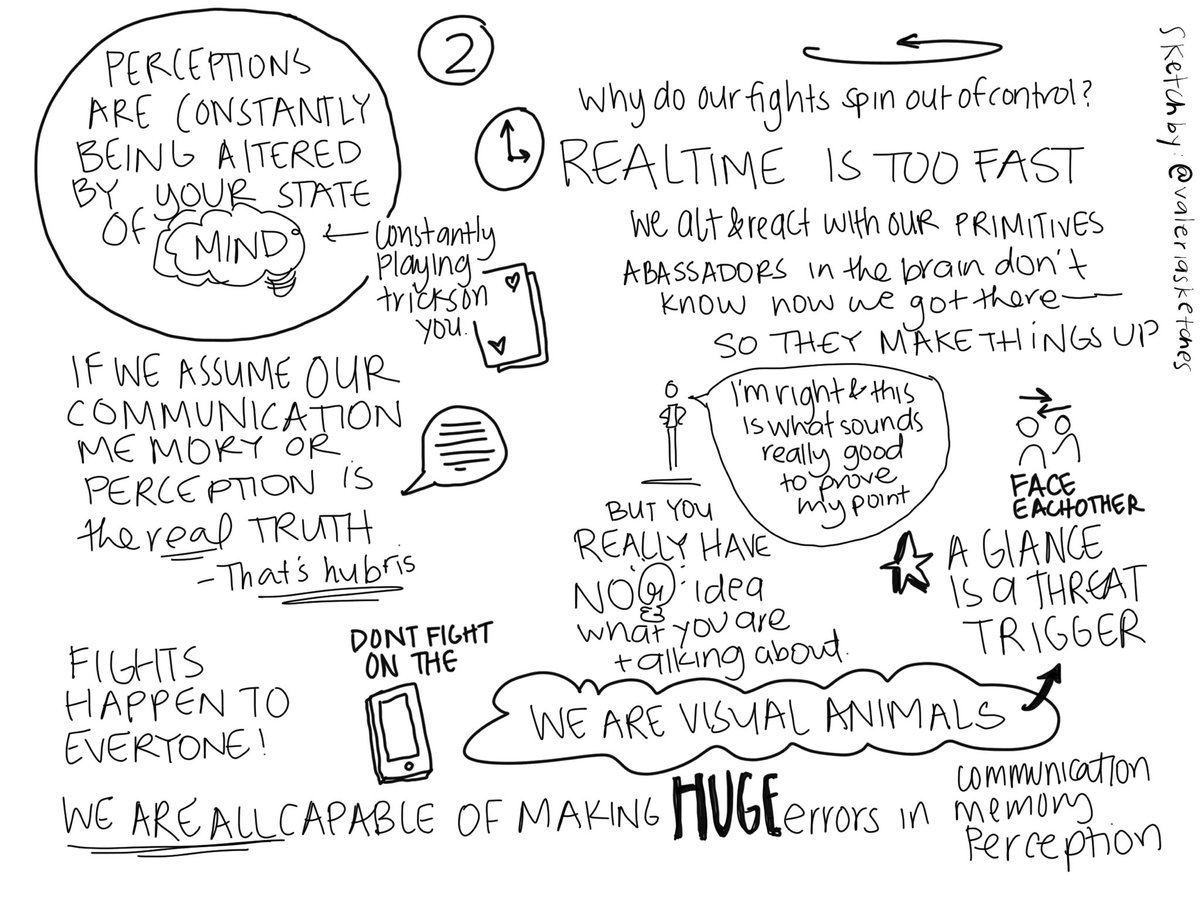 2
PERCEPTIONS
ARE CONSTANTLY
BEING ALTERED
BY YOUR STATE
OF MIND
Constantly
Playing
trickson
you.
IF WE ASSUME OUR
COMMUNICATION
MEMORY OR
PERCEPTION IS
the real TRUTH
- That's hubris
FIGHTS
HAPPEN TO
EVERYONE!
DONT FIGHT
ON THE
Why do our fights spin out of control?
REALTIME IS TOO FAST
We alt & react with our PRIMITIVES
ABASSADORS in the brain don't
know how we got there —
SO THEY MAKE THINGS UP
I'm right & this
Is what sounds
really good
to prove
my point
BUT YOU
REALLY HAVE
NO idea
what you are
talking about.
FACE
EACHOTHER
A GLANCE
IS a THREAT
TRIGGER
WE ARE VISUAL ANIMALS
WE ARE ALL CAPABLE OF MAKING HUGE errors in
communication
memory
Perception
Sketch by: @valeriasketches